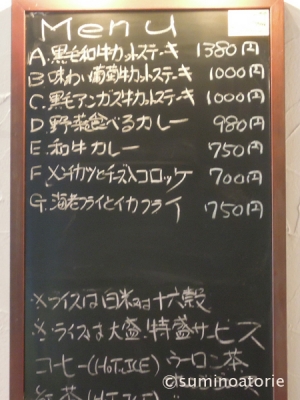 Menu
A. 黒毛和牛カットステーキ 1380円
B. 味わい葡萄牛カットステーキ 1000円
C. 黒毛アンガス牛カットステーキ 1000円
D. 野菜食べるカレー 980円
E. 和牛カレー 750円
F メンチカツとチーズ入コロッケ 700円
G. 海老フライとイカフライ 750円
※ライスは白米又は十六穀
※ライスは大盛.特盛サービス
コーヒー(HOT.ICE) ウーロン茶
紅茶(HOT.ICE)
©suminoatorie